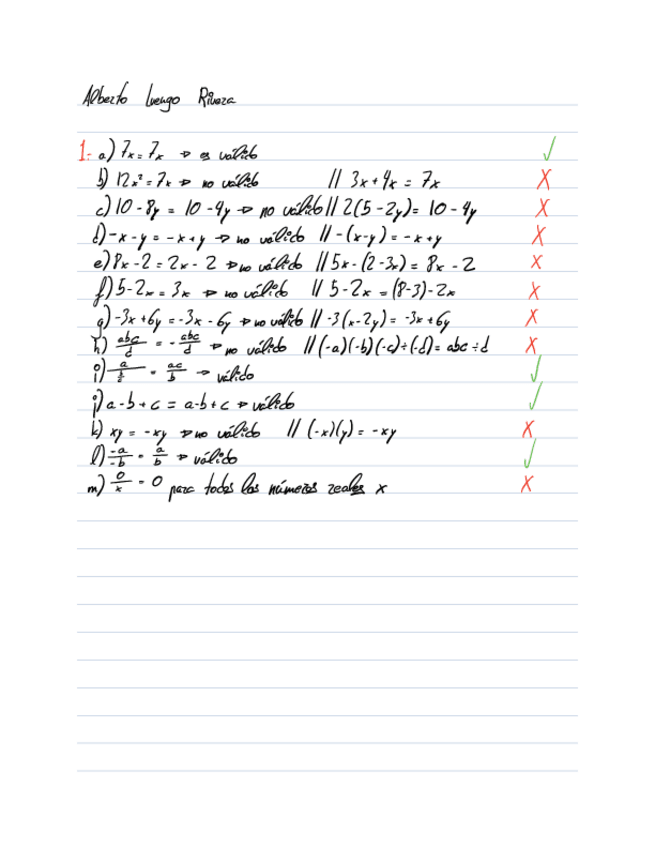 Alberto Luengo Rivera
1- a) 7x = 7x → es válido ✓
b) 12x² = 7x → no válido // 3x + 4x = 7x X
c) 10 - 8y = 10 - 4y → no válido // 2(5 - 2y) = 10 - 4y X
d) -x - y = -x + y → no válido // -(x-y) = -x+y X
e) 8x - 2 = 2x - 2 → no válido // 5x - (2 - 3x) = 8x - 2 X
f) 5 - 2x = 3x → no válido // 5 - 2x = (8-3) - 2x X
g) -3x + 6y = -3x - 6y → no válido // -3(x-2y) = -3x + 6y X
h) abc/d = - abc/d → no válido // (-a)(-b)(-c)÷(-d) = abc ÷ d X
i) = ac/b → válido ✓
j) a - b + c = a - b + c → válido ✓
k) xy = -xy → no válido // (-x)(y) = -xy X
l) -a/-b = a/b → válido ✓
m) 0/x = 0 para todos los números reales x X